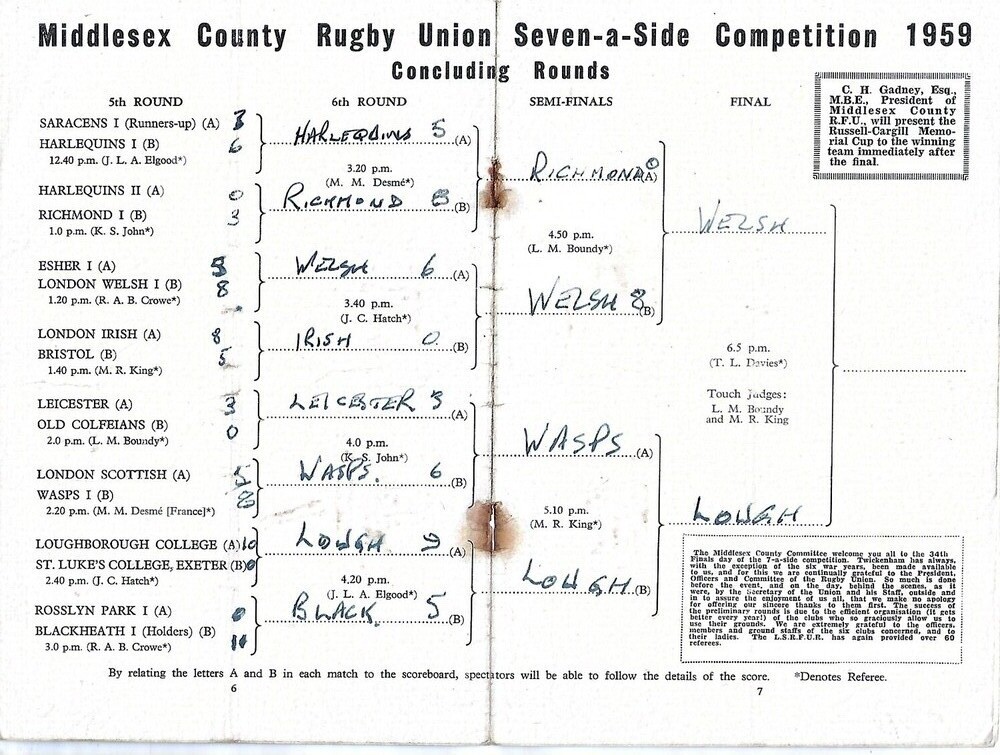 Middlesex County Rugby Union Seven-a-Side Competition 1959
Concluding Rounds
C. H. Gadney, Esq.,
M.B.E., President of
Middlesex County
R.F.U., will present the
Russell-Cargill Memo-
rial Cup to the winning
team immediately after
the final.
5th ROUND
SARACENS I (Runners-up) (A) 3
HARLEQUINS I (B) 6
12.40 p.m. (J. L. A. Elgood*)
HARLEQUINS II (A) 0
RICHMOND I (B) 3
1.0 p.m. (K. S. John*)
ESHER I (A) 5
LONDON WELSH I (B) 8
1.20 p.m. (R. A. B. Crowe*)
LONDON IRISH (A) 8
BRISTOL (B) 5
1.40 p.m. (M. R. King*)
LEICESTER (A) 3
OLD COLFEIANS (B) 0
2.0 p.m. (L. M. Boundy*)
LONDON SCOTTISH (A) 5
WASPS I (B) 8
2.20 p.m. (M. M. Desmé [France]*)
LOUGHBOROUGH COLLEGE (A) 10
ST. LUKE'S COLLEGE, EXETER (B) 0
2.40 p.m. (J. C. Hatch*)
ROSSLYN PARK I (A) 0
BLACKHEATH I (Holders) (B) 11
3.0 p.m. (R. A. B. Crowe*)
6th ROUND
HARLEQUINS 5 (A)
3.20 p.m.
(M. M. Desmé*)
RICHMOND 8 (B)
WELSH 6 (A)
3.40 p.m.
(J. C. Hatch*)
IRISH 0 (B)
LEICESTER 3 (A)
4.0 p.m.
(K. S. John*)
WASPS. 6 (B)
LOUGH 9 (A)
4.20 p.m.
(J. L. A. Elgood*)
BLACK. 5 (B)
SEMI-FINALS
RICHMOND 0 (A)
4.50 p.m.
(L. M. Boundy*)
WELSH 8 (B)
WASPS (A)
5.10 p.m.
(M. R. King*)
LOUGH. (B)
FINAL
WELSH
6.5 p.m.
(T. L. Davies*)
Touch Judges:
L. M. Boundy
and M. R. King
LOUGH
The Middlesex County Committee welcome you all to the 34th
Finals day of the 7-a-side competition. Twickenham has always,
with the exception of the six war years, been made available
to us, and for this we are continually grateful to the President,
Officers and Committee of the Rugby Union. So much is done
before the event, and on the day, behind the scenes, as it
were, by the Secretary of the Union and his Staff, outside and
in to assure the enjoyment of us all, that we make no apology
for offering our sincere thanks to them first. The success of
the preliminary rounds is due to the efficient organisation (it gets
better every year!) of the clubs who so graciously allow us to
use their grounds. We are extremely grateful to the officers,
members and ground staffs of the six clubs concerned, and to
their ladies. The L.S.R.F.U.R. has again provided over 60
referees.
By relating the letters A and B in each match to the scoreboard, spectators will be able to follow the details of the score. *Denotes Referee.
6
7